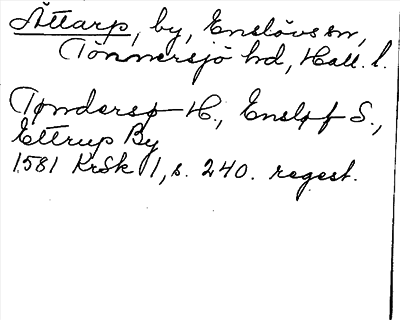 Åttarp, by, Enslövs sn,
Tönnersjö hd, Hall. l.
Tøndersø H., Ensløf S.,
Ettrup By
1581 KrSk 1, s. 240. regest.